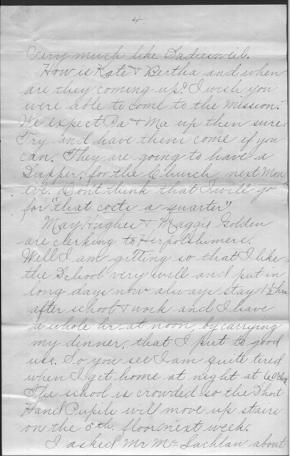 4
Very much like
How is Kate & Bertha and when
are they coming up? I wish you
were able to come to the Mission.
We expect Pa & Ma up then sure
Try and have them come if you
can. They are going to have a
Supper, for the Church next Mon
eve. Don't think that I will go
for "that costs a quarter"
May Hughes & Maggie Golden
are clerking to Herpolshimers.
Well I am getting so that I like
the School very well and put in
long days now always stay 1½ hrs
after school & work and I have
a whole hr. at noon, by carrying
my dinner, that I put to good
use. So you see I am quite tired
when I get home at night at
The school is crowded so the Short
Hand Pupils will move up stairs
on the 5th floor next week.
I asked Mr McLachlan about